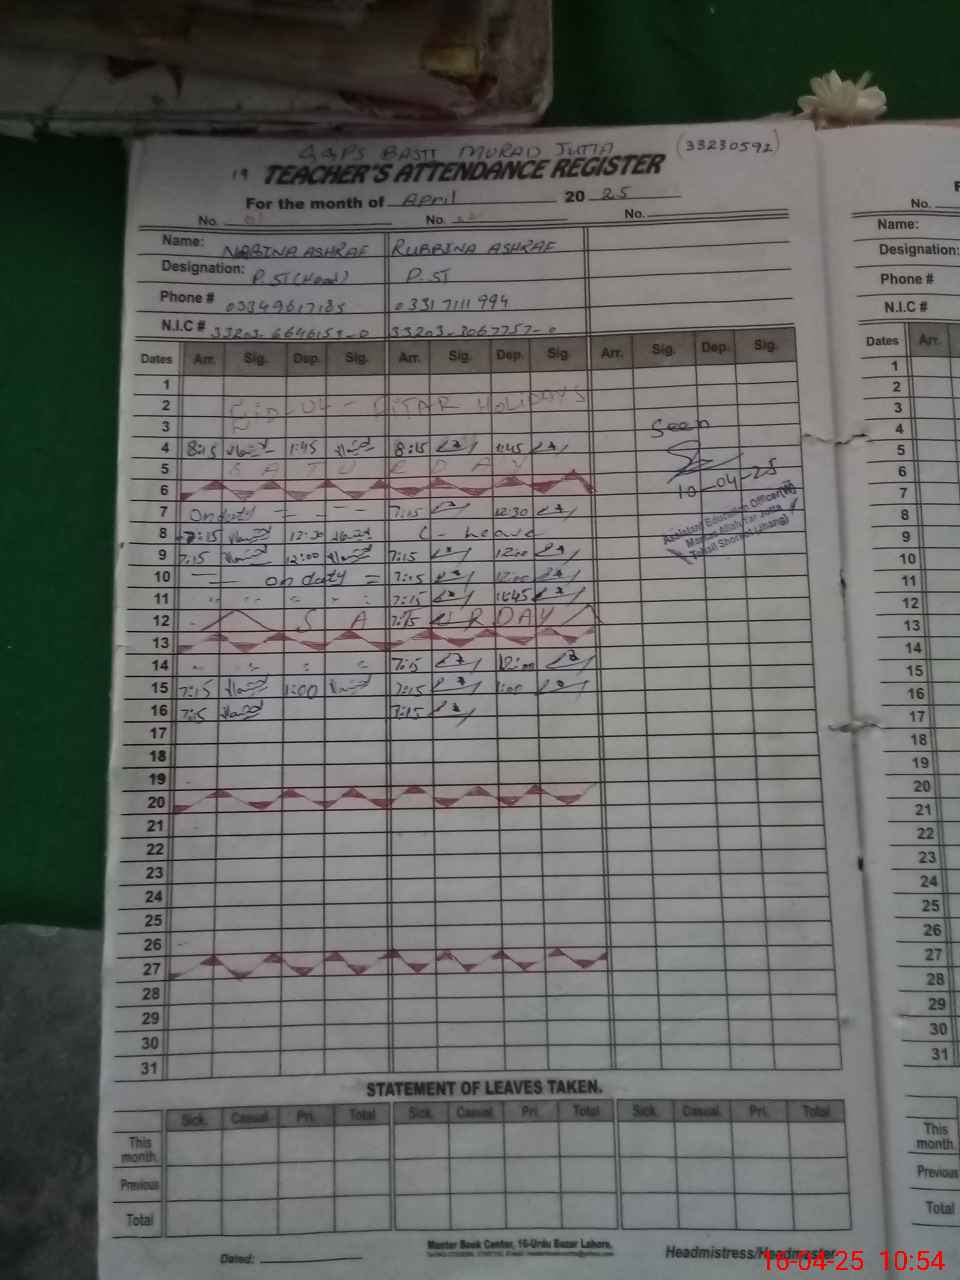 GGPS BASTI MURAD JUTTA (33230592)
19 TEACHER'S ATTENDANCE REGISTER
For the month of April 2025
No. 01 No. No.
Name: RUBBINA ASHRAF
Designation: P.ST (Head) P.ST
Phone # 03349617185 03317111994
N.I.C # 33203-6646153-0 33203-8067757-0
Dates Arr. Sig. Dep. Sig. Arr. Sig. Dep. Sig. Arr. Sig. Dep. Sig.
1
2 Eid-Ul-FITAR HOLIDAYS
3
4 8:15 1:45 8:15 1:45
5 SATURDAY
6
7 On duty 7:15 12:30
8 7:15 12:30 C-Leave
9 7:15 12:00 7:15 12:00
10 on duty 7:15 12:00
11 7:15 11:45
12 SATURDAY 7:15
13
14 7:15 12:00
15 7:15 1:00 7:15 1:00
16 7:15 7:15
17
18
19
20
21
22
23
24
25
26
27
28
29
30
31
Seen
10-04-25
Assistant Education Officer (W)
Markaz Allah Yar Jutta
Tehsil Shorkot (Jhang)
STATEMENT OF LEAVES TAKEN.
Sick. Casual. Pri. Total Sick. Casual. Pri. Total Sick. Casual. Pri. Total
This month.
Previous
Total
Master Book Center, 16-Urdu Bazar Lahore.
Dated: Headmistress/Headmaster
No.
Name:
Designation:
Phone #
N.I.C #
Dates Arr.
1
2
3
4
5
6
7
8
9
10
11
12
13
14
15
16
17
18
19
20
21
22
23
24
25
26
27
28
29
30
31
This month.
Previous
Total
16-04-25 10:54